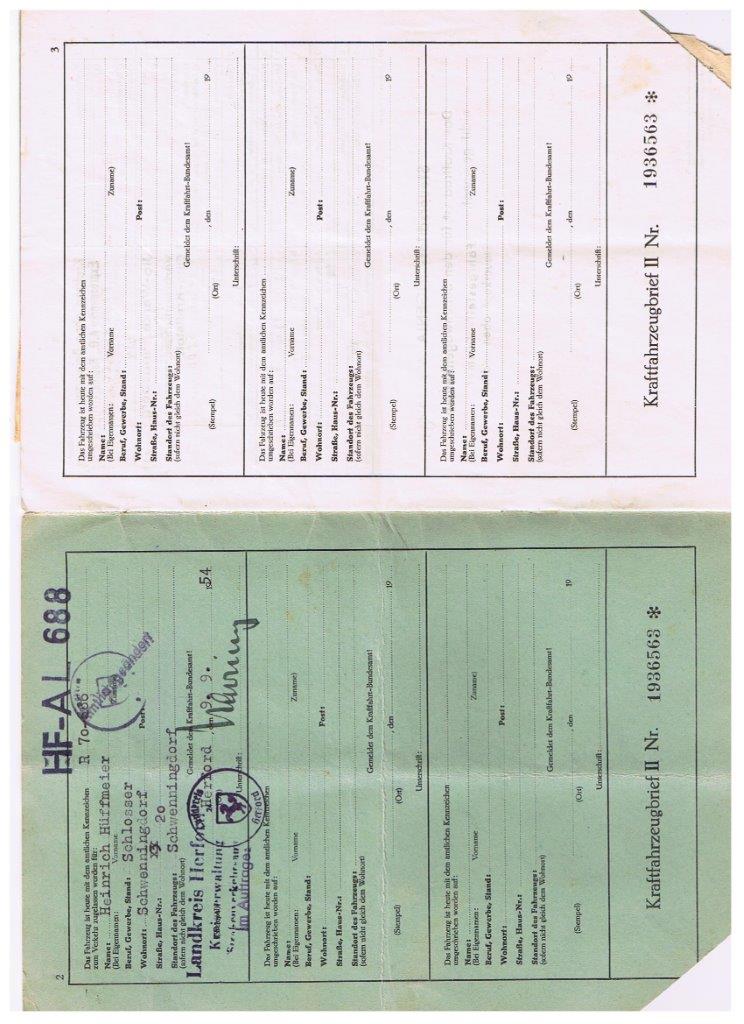 2
HF-AL 688
Das Fahrzeug ist heute mit dem amtlichen Kennzeichen R 70-686
zum Verkehr zugelassen worden für:
Name: Heinrich Hüffmeier
(Bei Eigennamen: Vorname Zuname)
Beruf, Gewerbe, Stand: Schlosser
Wohnort: Schwenningdorf Post:
Straße, Haus-Nr.: 20
Standort des Fahrzeugs: Schwenningdorf
(sofern nicht gleich dem Wohnort)
Gemeldet dem Kraftfahrt-Bundesamt!
Landkreis Herford Herford, den 9. 9. 1954
Kreisverwaltung
Straßenverkehrsamt
Im Auftrage:
Unterschrift:
Das Fahrzeug ist heute mit dem amtlichen Kennzeichen
umgeschrieben worden auf:
Name:
(Bei Eigennamen: Vorname Zuname)
Beruf, Gewerbe, Stand:
Wohnort: Post:
Straße, Haus-Nr.:
Standort des Fahrzeugs:
(sofern nicht gleich dem Wohnort)
Gemeldet dem Kraftfahrt-Bundesamt!
(Stempel) (Ort) , den 19
Unterschrift:
Das Fahrzeug ist heute mit dem amtlichen Kennzeichen
umgeschrieben worden auf:
Name:
(Bei Eigennamen: Vorname Zuname)
Beruf, Gewerbe, Stand:
Wohnort: Post:
Straße, Haus-Nr.:
Standort des Fahrzeugs:
(sofern nicht gleich dem Wohnort)
Gemeldet dem Kraftfahrt-Bundesamt!
(Stempel) (Ort) , den 19
Unterschrift:
Kraftfahrzeugbrief II Nr. 1936563 *
3
Das Fahrzeug ist heute mit dem amtlichen Kennzeichen
umgeschrieben worden auf:
Name:
(Bei Eigennamen: Vorname Zuname)
Beruf, Gewerbe, Stand:
Wohnort: Post:
Straße, Haus-Nr.:
Standort des Fahrzeugs:
(sofern nicht gleich dem Wohnort)
Gemeldet dem Kraftfahrt-Bundesamt!
(Stempel) (Ort) , den 19
Unterschrift:
Das Fahrzeug ist heute mit dem amtlichen Kennzeichen
umgeschrieben worden auf:
Name:
(Bei Eigennamen: Vorname Zuname)
Beruf, Gewerbe, Stand:
Wohnort: Post:
Straße, Haus-Nr.:
Standort des Fahrzeugs:
(sofern nicht gleich dem Wohnort)
Gemeldet dem Kraftfahrt-Bundesamt!
(Stempel) (Ort) , den 19
Unterschrift:
Das Fahrzeug ist heute mit dem amtlichen Kennzeichen
umgeschrieben worden auf:
Name:
(Bei Eigennamen: Vorname Zuname)
Beruf, Gewerbe, Stand:
Wohnort: Post:
Straße, Haus-Nr.:
Standort des Fahrzeugs:
(sofern nicht gleich dem Wohnort)
Gemeldet dem Kraftfahrt-Bundesamt!
(Stempel) (Ort) , den 19
Unterschrift:
Kraftfahrzeugbrief II Nr. 1936563 *